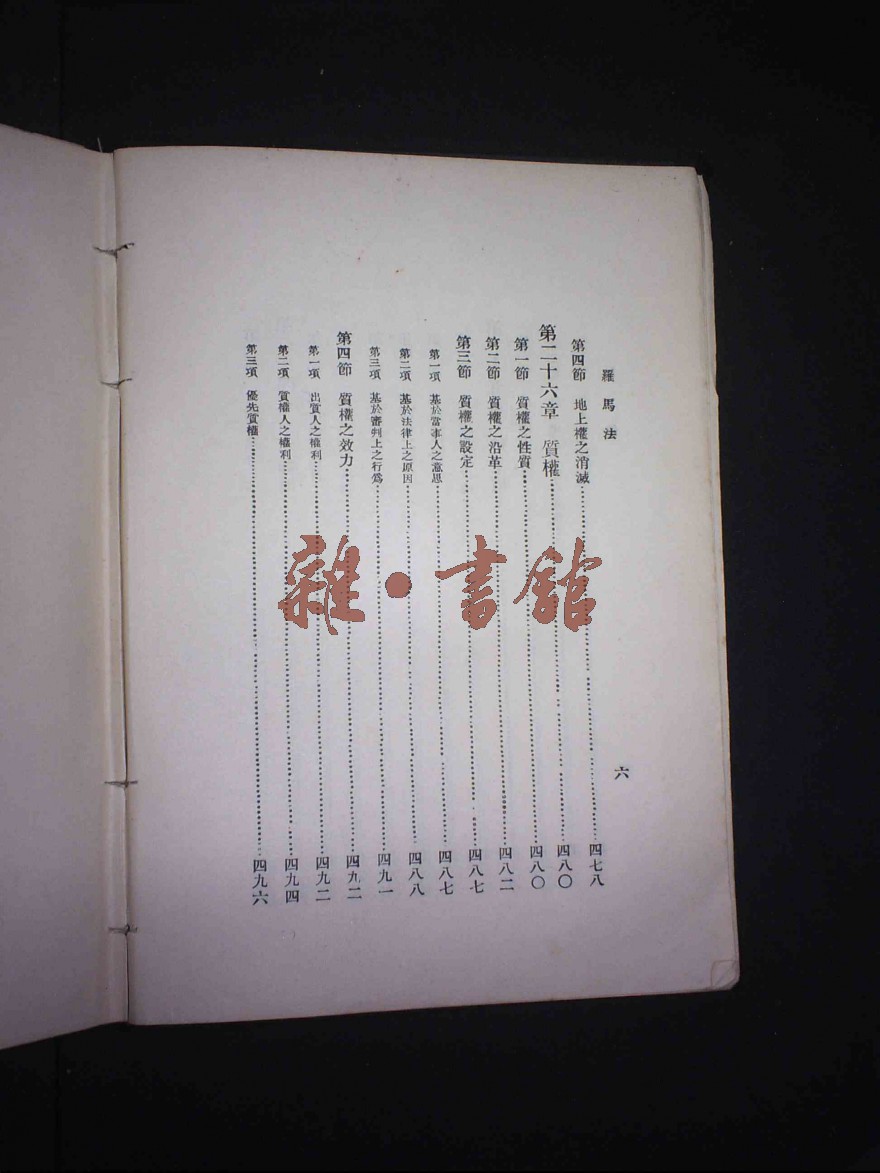 羅馬法
六
第四節 地上權之消滅 四七八
第二十六章 質權 四八〇
第一節 質權之性質 四八〇
第二節 質權之沿革 四八二
第三節 質權之設定 四八七
第一項 基於當事人之意思 四八七
第二項 基於法律上之原因 四八八
第三項 基於審判上之行爲 四九一
第四節 質權之效力 四九二
第一項 出質人之權利 四九二
第二項 質權人之權利 四九四
第三項 優先質權 四九六
雜·書館